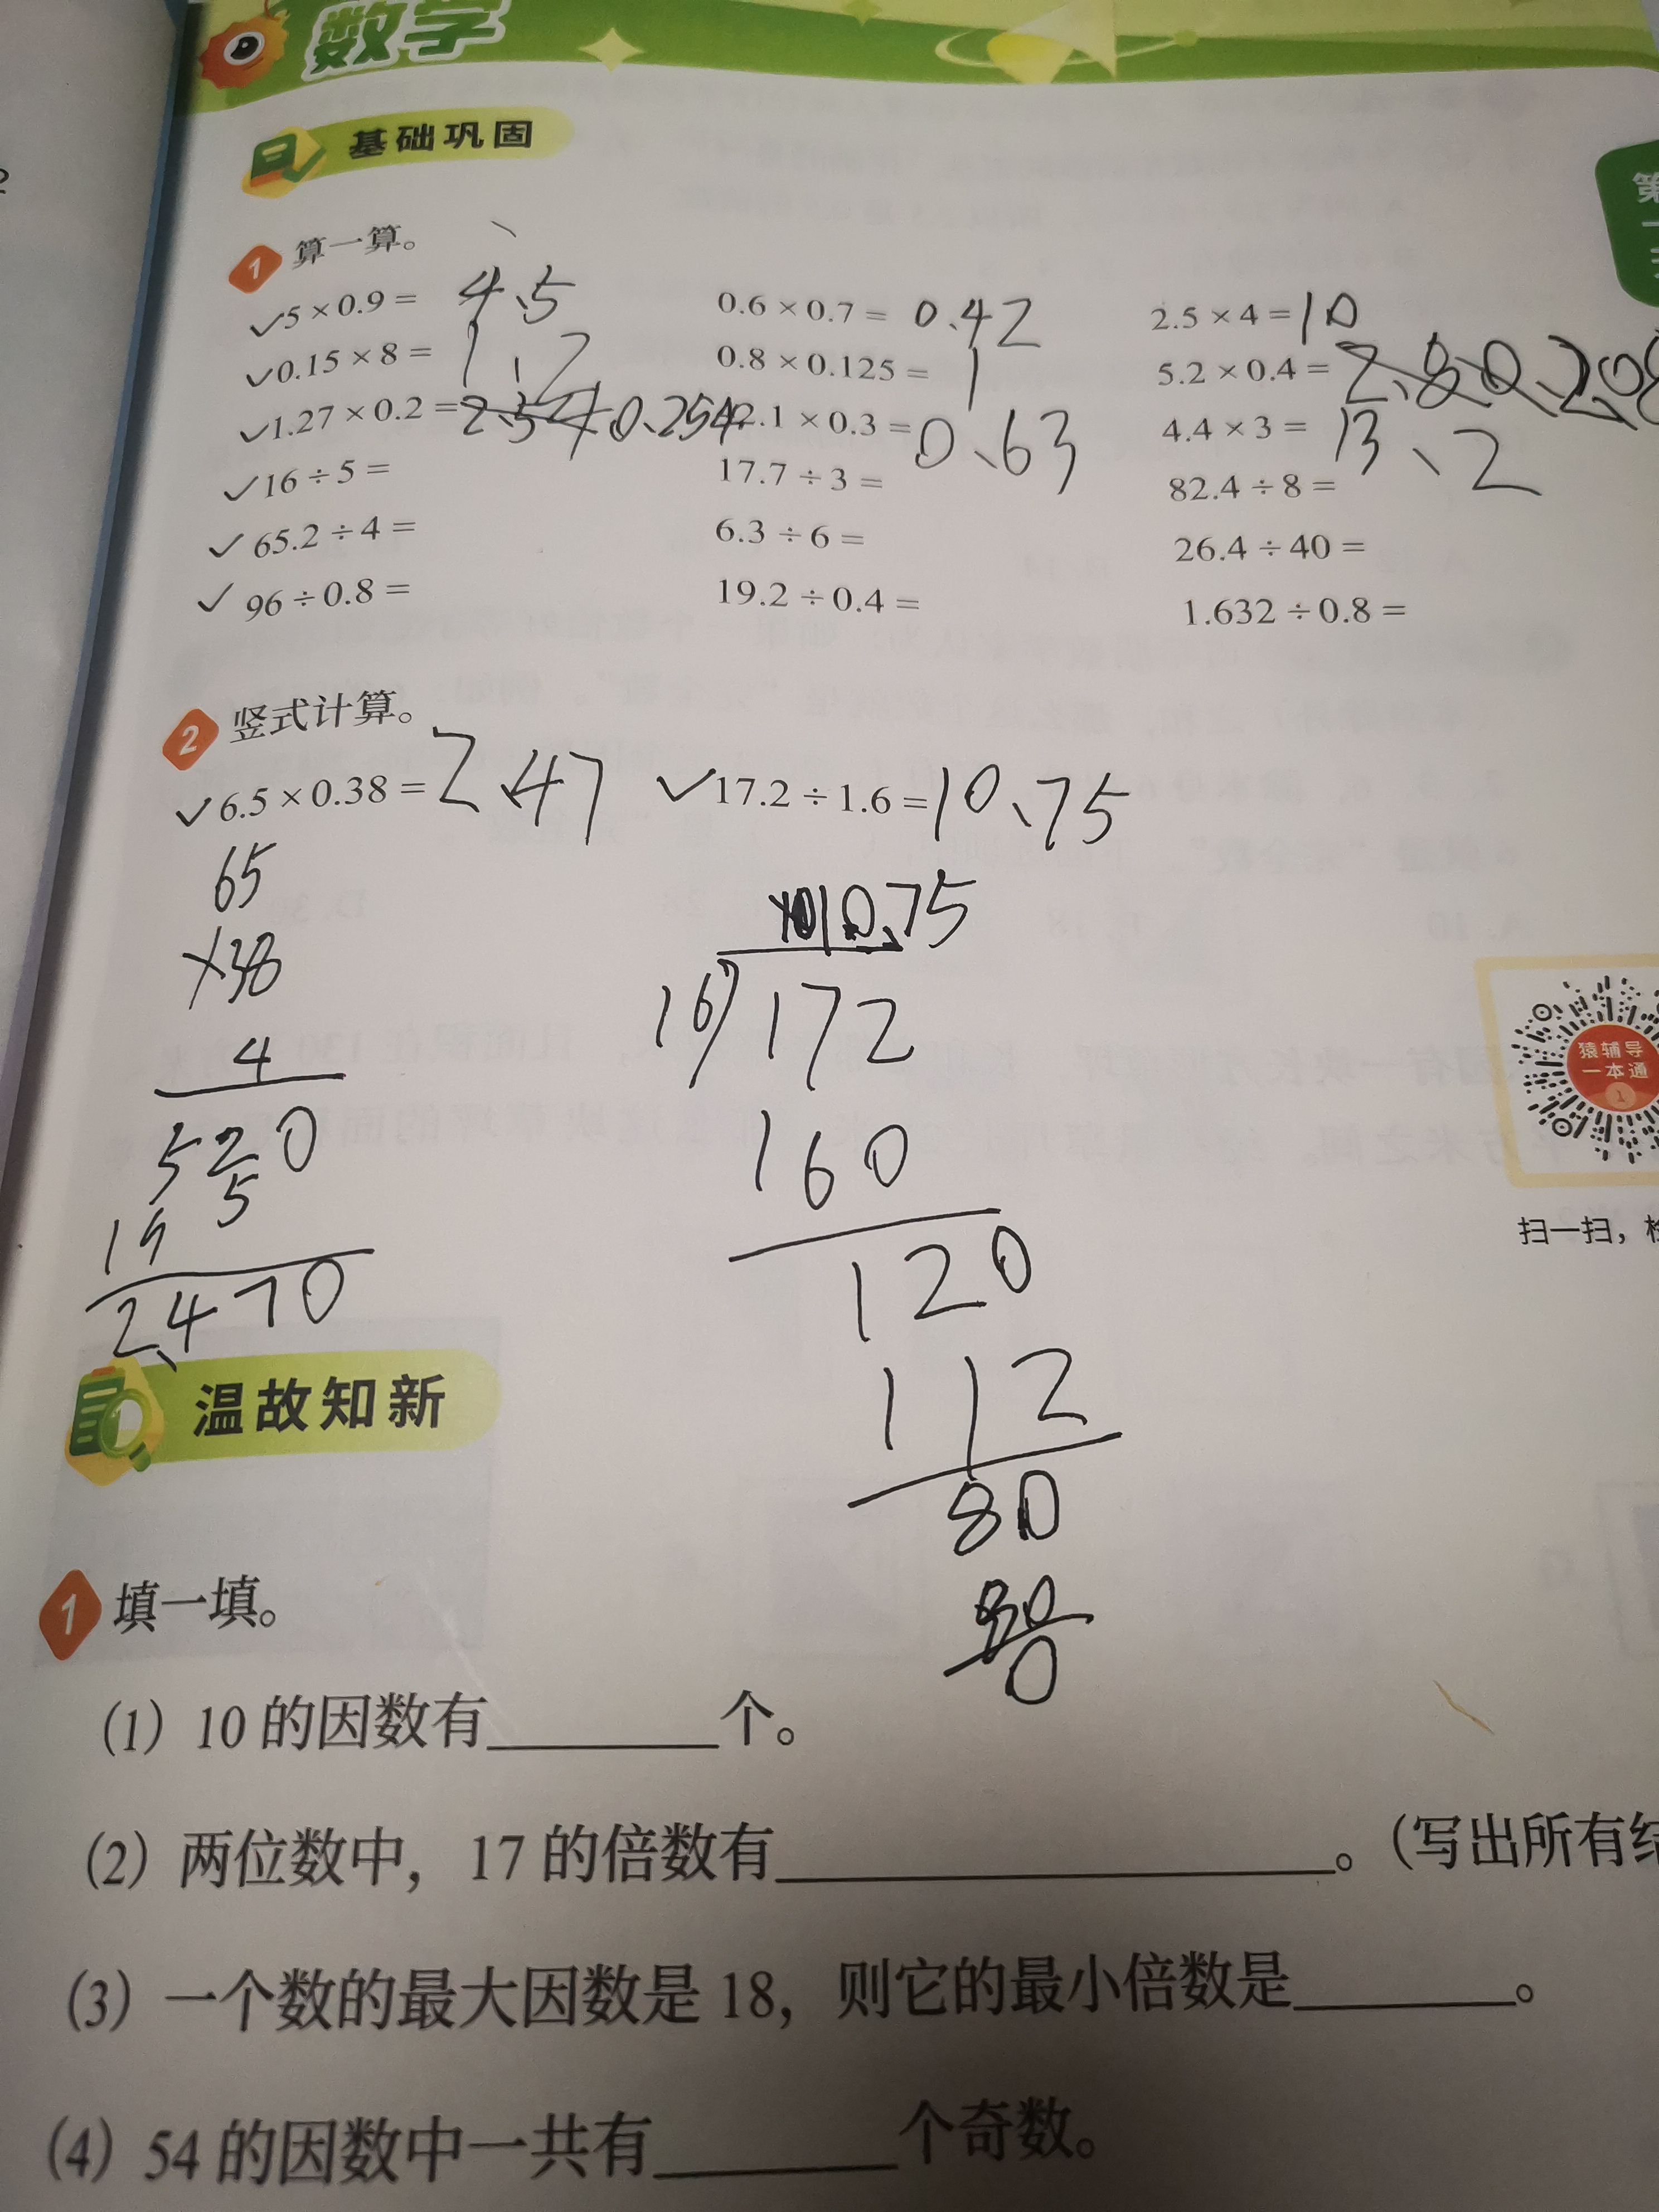 数学
基础巩固
1 算一算。
✓5×0.9= 4.5 0.6×0.7= 0.42 2.5×4= 10
✓0.15×8= 1.2 0.8×0.125= 1 5.2×0.4= 2.80.208
✓1.27×0.2= 2.54 0.254 2.1×0.3= 0.63 4.4×3= 13.2
✓16÷5= 17.7÷3= 82.4÷8=
✓65.2÷4= 6.3÷6= 26.4÷40=
✓96÷0.8= 19.2÷0.4= 1.632÷0.8=
2 竖式计算。
✓6.5×0.38= 2.47 ✓17.2÷1.6= 10.75
65
×38
4
520
195
2.470
10.75
16)172
160
120
112
80
80
0
猿辅导
一本通
1
扫一扫，
第
一
温故知新
1 填一填。
(1) 10 的因数有________个。
(2) 两位数中，17 的倍数有________。(写出所有
(3) 一个数的最大因数是 18，则它的最小倍数是________。
(4) 54 的因数中一共有________个奇数。